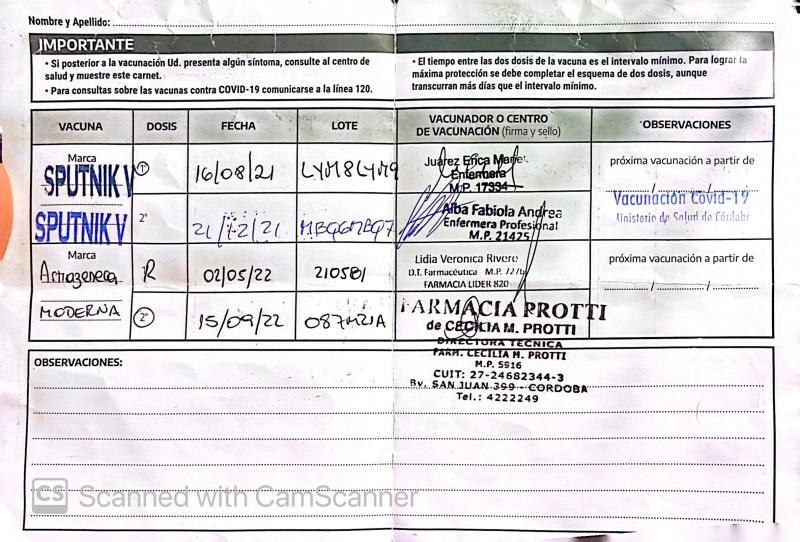 Nombre y Apellido:
IMPORTANTE
• Si posterior a la vacunación Ud. presenta algún síntoma, consulte al centro de
salud y muestre este carnet.
• Para consultas sobre las vacunas contra COVID-19 comunicarse a la línea 120.
• El tiempo entre las dos dosis de la vacuna es el intervalo mínimo. Para lograr la
máxima protección se debe completar el esquema de dos dosis, aunque
transcurran más días que el intervalo mínimo.
VACUNA DOSIS FECHA LOTE VACUNADOR O CENTRO
DE VACUNACIÓN (firma y sello) OBSERVACIONES
Marca
SPUTNIK V 1° 16/08/21 LYM8LYM9
Juarez Erica Mariel
Enfermera
M.P. 17334
próxima vacunación a partir de
SPUTNIK V 2° 21/12/21
Alba Fabiola Andrea
Enfermera Profesional
M.P. 21425
Vacunación Covid-19
Ministerio de Salud de Córdoba
Marca
Astrazeneca R 02/05/22 210581
Lidia Veronica Rivero
D.T. Farmacéutica M.P.
FARMACIA LIDER 820
próxima vacunación a partir de
MODERNA 2° 15/09/22 087M21A
FARMACIA PROTTI
de CECILIA M. PROTTI
DIRECTORA TECNICA
FARM. CECILIA M. PROTTI
M.P. 5916
CUIT: 27-24682344-3
Bv. SAN JUAN 399 - CORDOBA
Tel.: 4222249
OBSERVACIONES:
CS Scanned with CamScanner